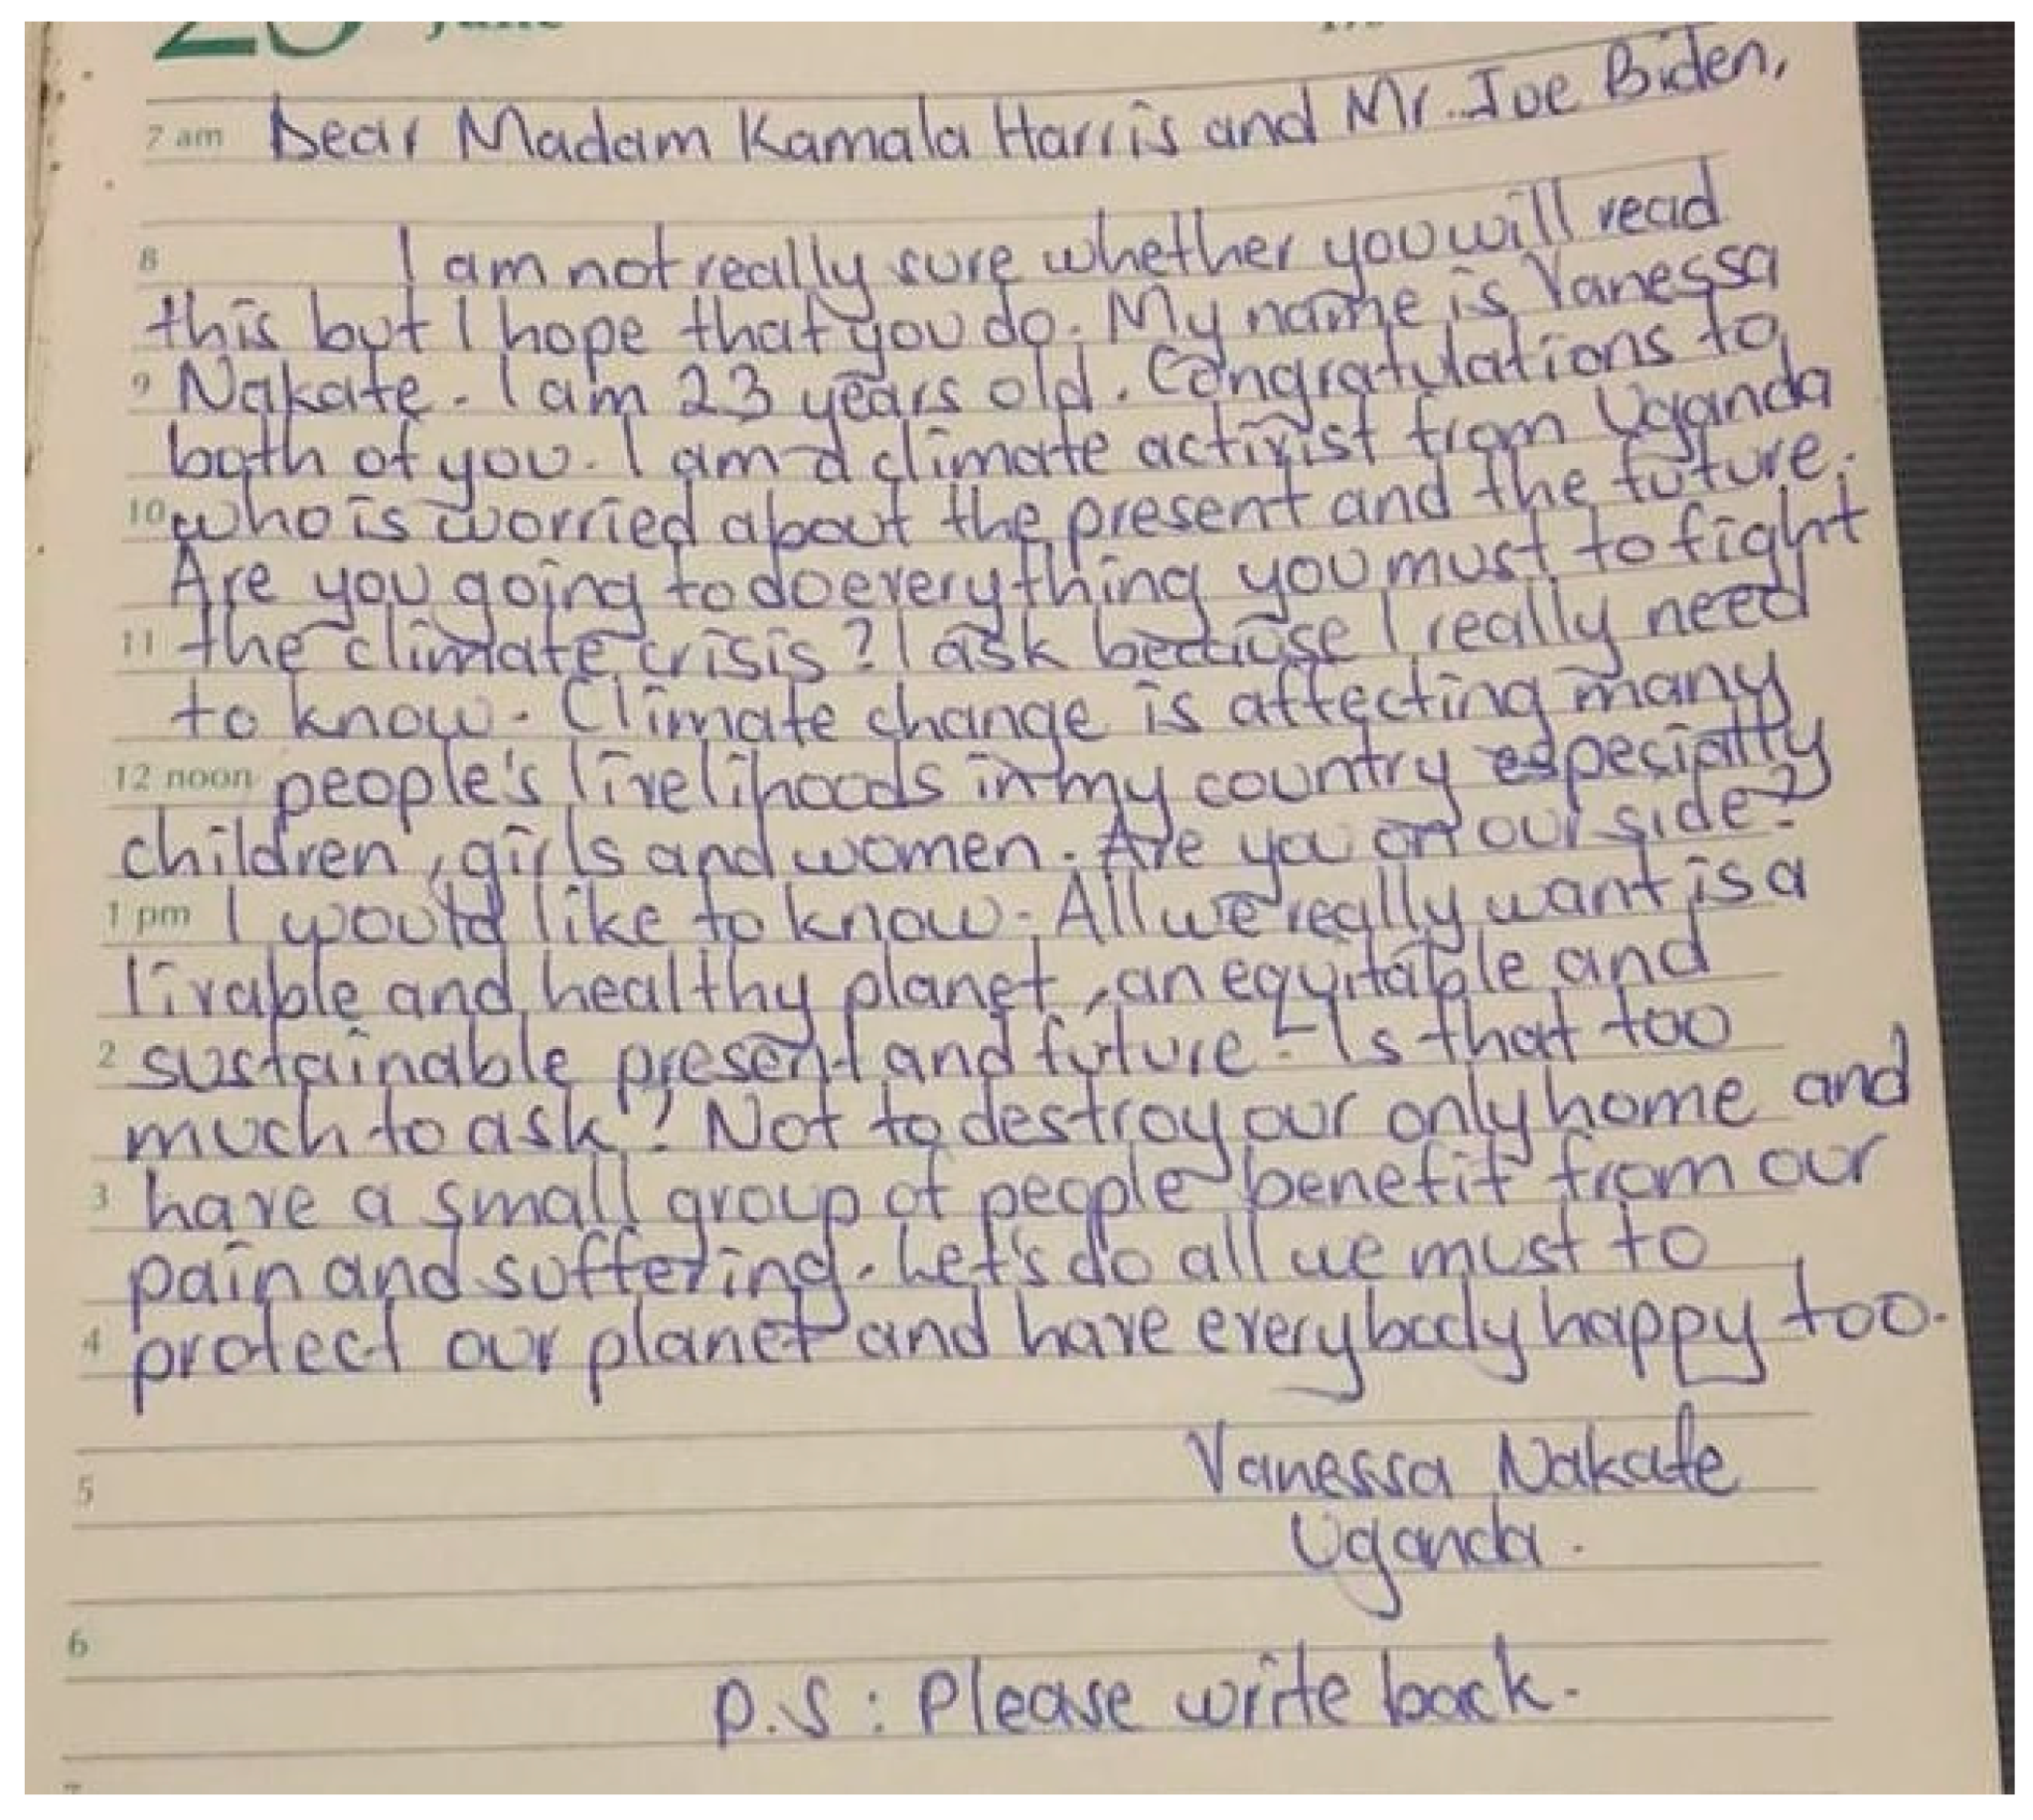 June
7 am Dear Madam Kamala Harris and Mr. Joe Biden,
8 I am not really sure whether you will read
this but I hope that you do. My name is Vanessa
9 Nakate. I am 23 years old. Congratulations to
both of you. I am a climate activist from Uganda
10 who is worried about the present and the future.
Are you going to do everything you must to fight
11 the climate crisis? I ask because I really need
to know. Climate change is affecting many
12 noon people's livelihoods in my country especially
children, girls and women. Are you on our side?
1 pm I would like to know. All we really want is a
livable and healthy planet, an equitable and
2 sustainable present and future. Is that too
much to ask? Not to destroy our only home and
3 have a small group of people benefit from our
pain and suffering. Let's do all we must to
4 protect our planet and have everybody happy too.
Vanessa Nakate
5
Uganda.
6
P.S: Please write back.